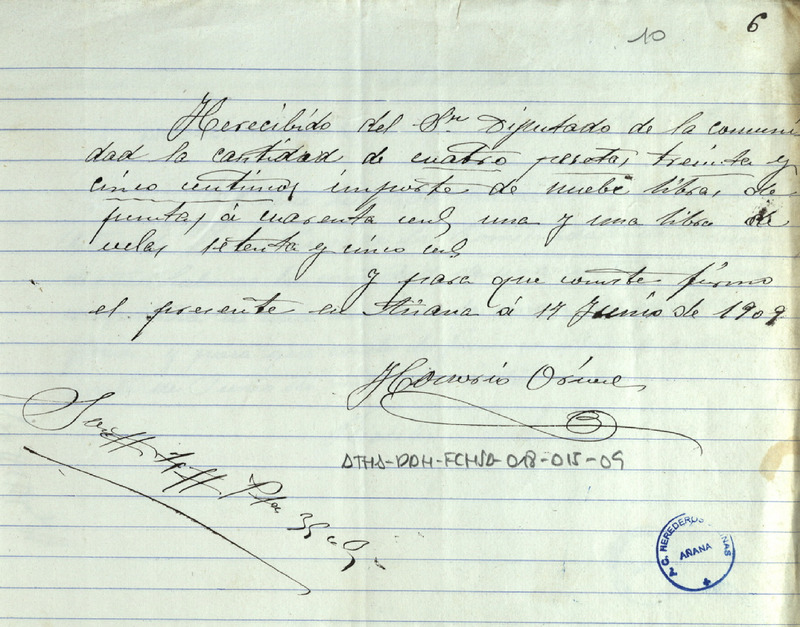 6
10
He recibido del Sr Diputado de la comuni
dad la cantidad de cuatro pesetas treinta y
cinco centimos importe de nuebe libras de
puntas á cuarenta cens una y una libra de
velas setenta y cinco cens
y para que conste firmo
el presente en Añana á 17 Junio de 1909
Honorio
ATHA-DAH-FCHSA-018-015-09
Son 4 Ptas 35 cs
C. HEREDEROS
AÑANA